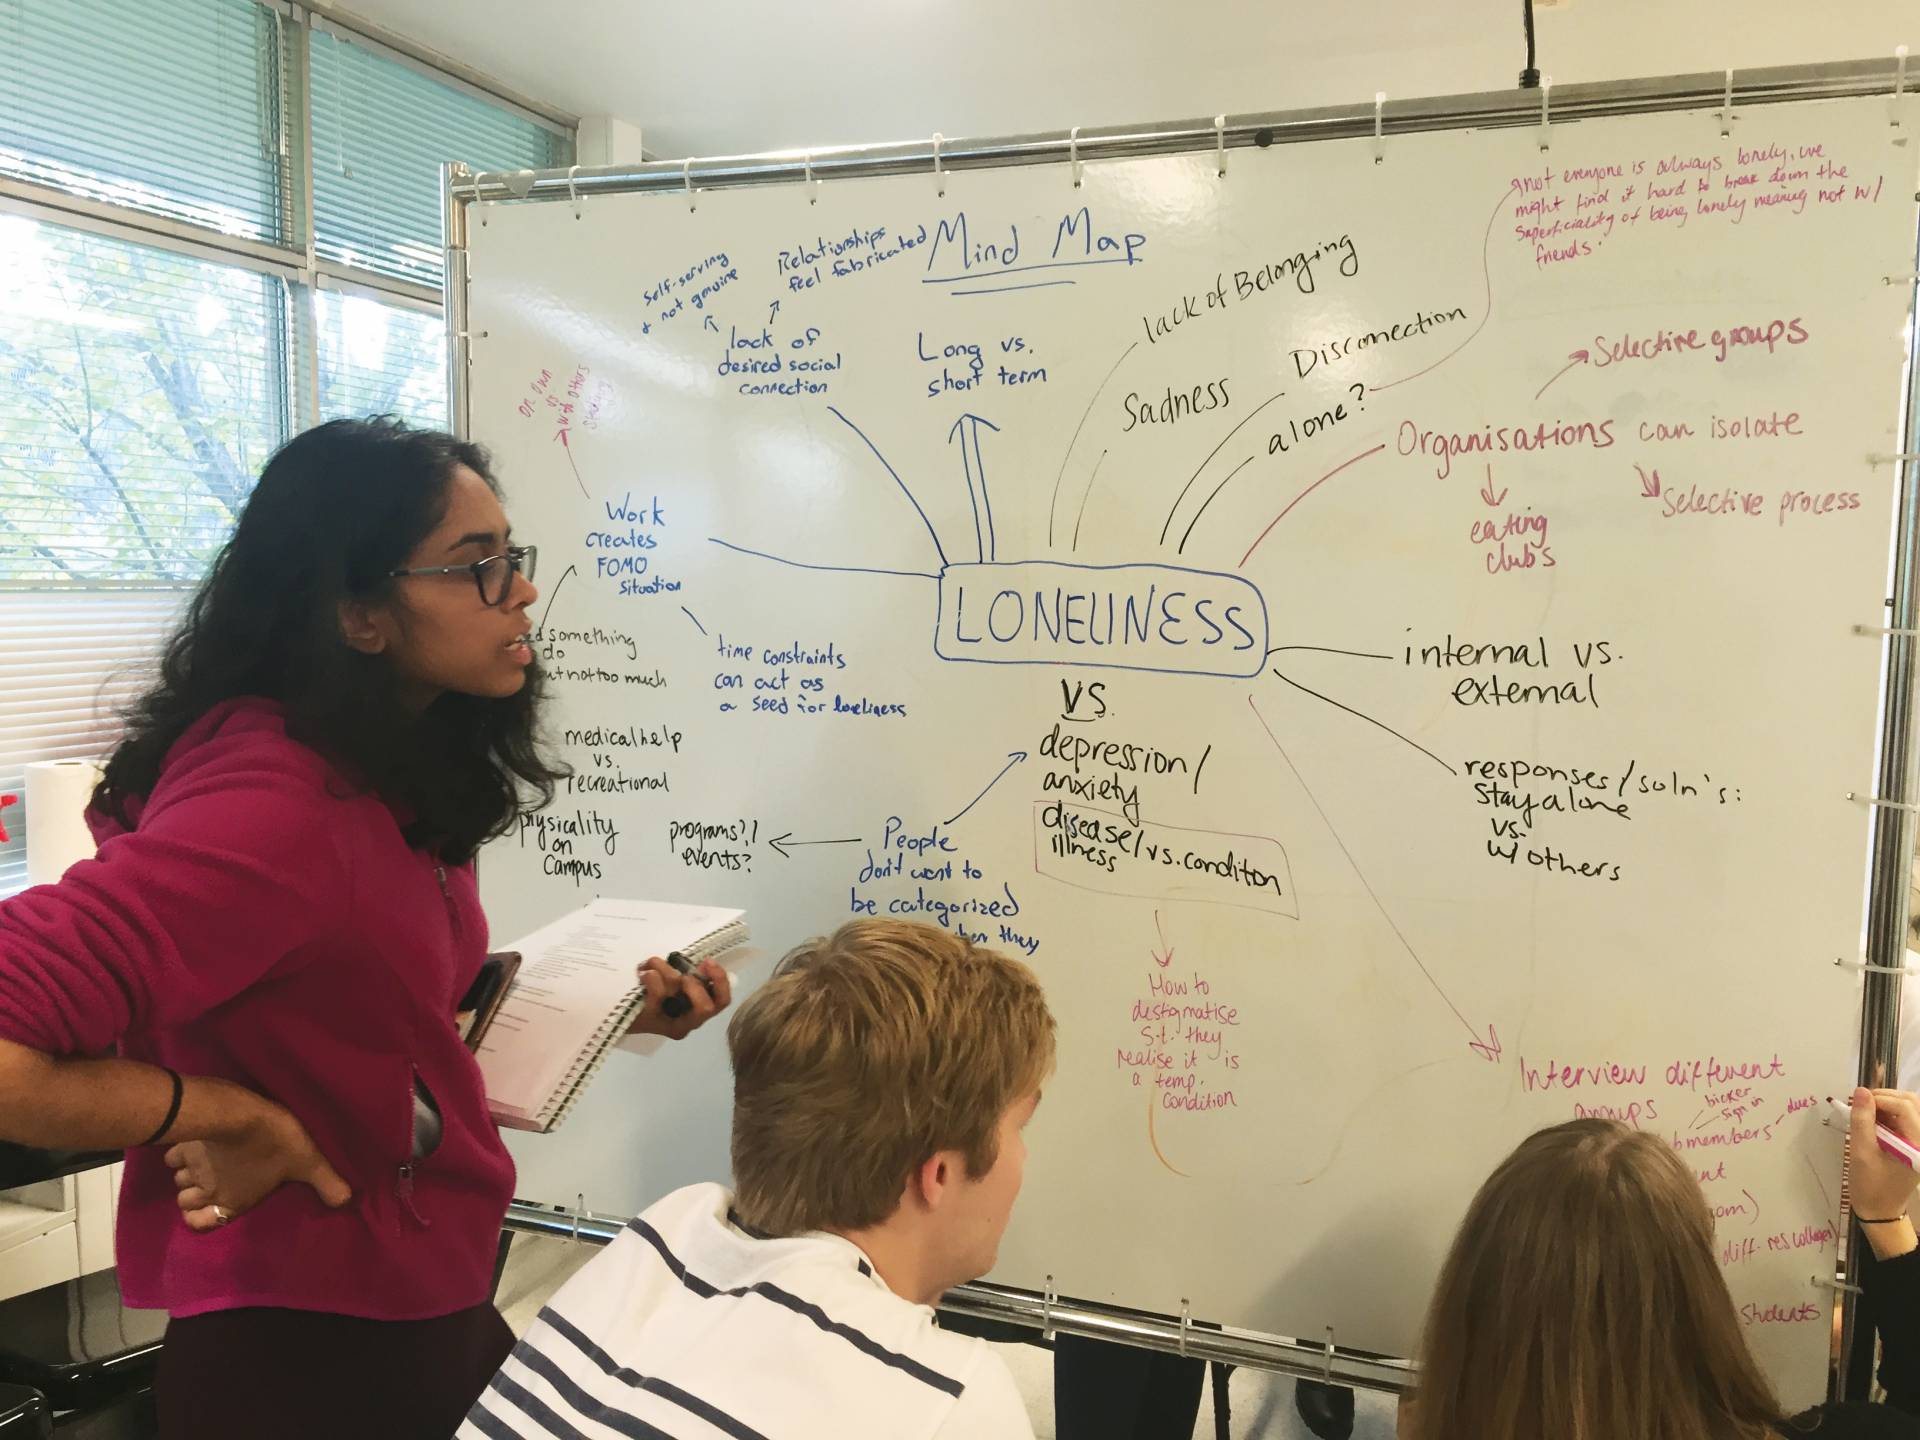 Mind Map
not everyone is always lonely, we
might find it hard to break down the
superficiality of being lonely meaning not w/
friends.
self-serving
+ not genuine
Relationships
feel fabricated
lack of
desired social
connection
Long vs.
short term
lack of Belonging
Sadness
Disconnection
alone?
Selective groups
Organisations can isolate
Selective process
eating
clubs
on own
vs
with others
studying
Work
creates
FOMO
situation
something
do
but not too much
time constraints
can act as
a seed for loneliness
LONELINESS
internal vs.
external
responses/soln's:
Stay alone
vs.
w/ others
VS.
depression/
anxiety
disease/vs. condition
illness
medical help
vs.
recreational
physicality
on
Campus
programs?/
events?
People
don't want to
be categorized
they
How to
destigmatise
s.t. they
realise it is
a temp.
condition
Interview different
groups
bicker
sign in
dues
members
diff. res colleges)
students